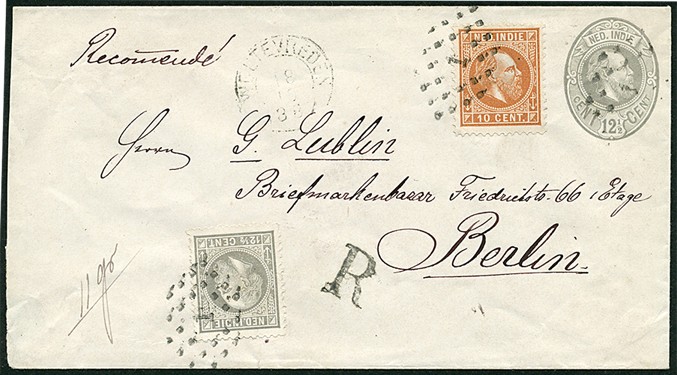 Recomendé
WELTEVREDEN
NED. INDIE
10 CENT.
NED. INDIE
CENT 12½ CENT
Herrn G. Lublin
Briefmarkenbazar Friedrichstr. 66 I Etage
Berlin.
R
12½ CENT.
NED. INDIE
11 gr